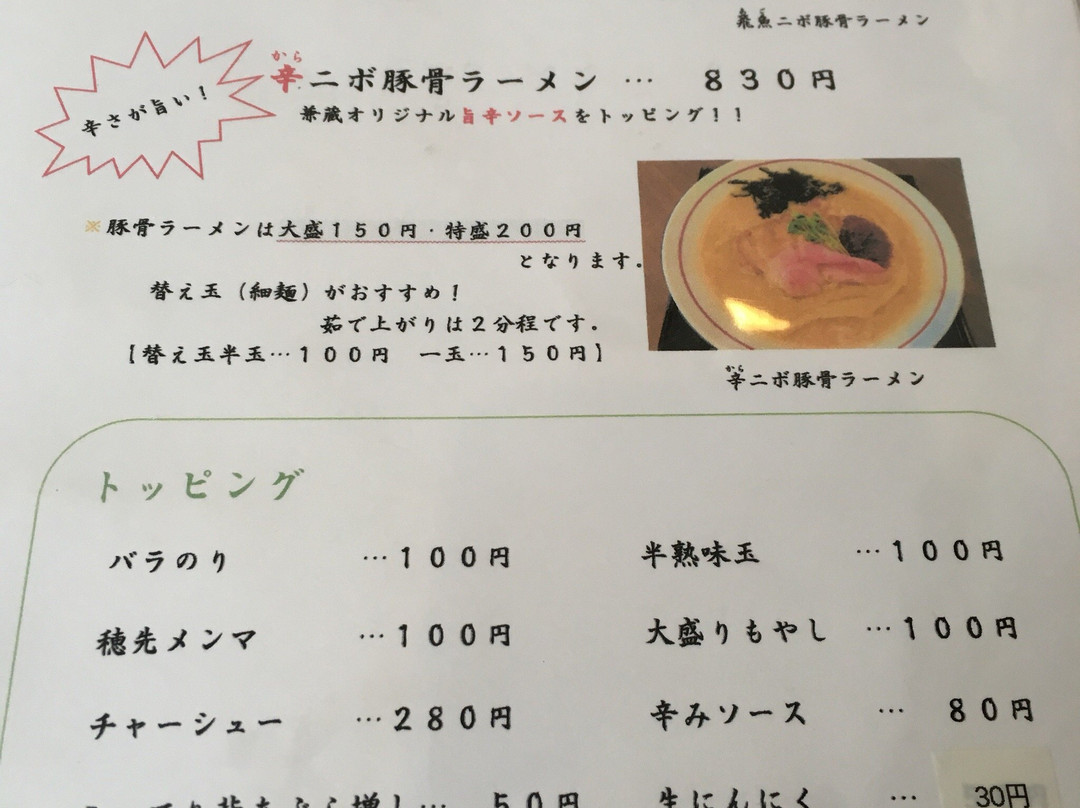 飛魚ニボ豚骨ラーメン
辛さが旨い！
から
辛ニボ豚骨ラーメン … ８３０円
兼蔵オリジナル旨辛ソースをトッピング！！
※豚骨ラーメンは大盛１５０円・特盛２００円
となります．
替え玉（細麺）がおすすめ！
茹で上がりは２分程です．
【替え玉半玉…１００円　一玉…１５０円】
から
辛ニボ豚骨ラーメン
トッピング
バラのり …１００円
半熟味玉 …１００円
穂先メンマ …１００円
大盛りもやし …１００円
チャーシュー …２８０円
辛みソース … ８０円
増し… ５０円
生にんにく … 30円